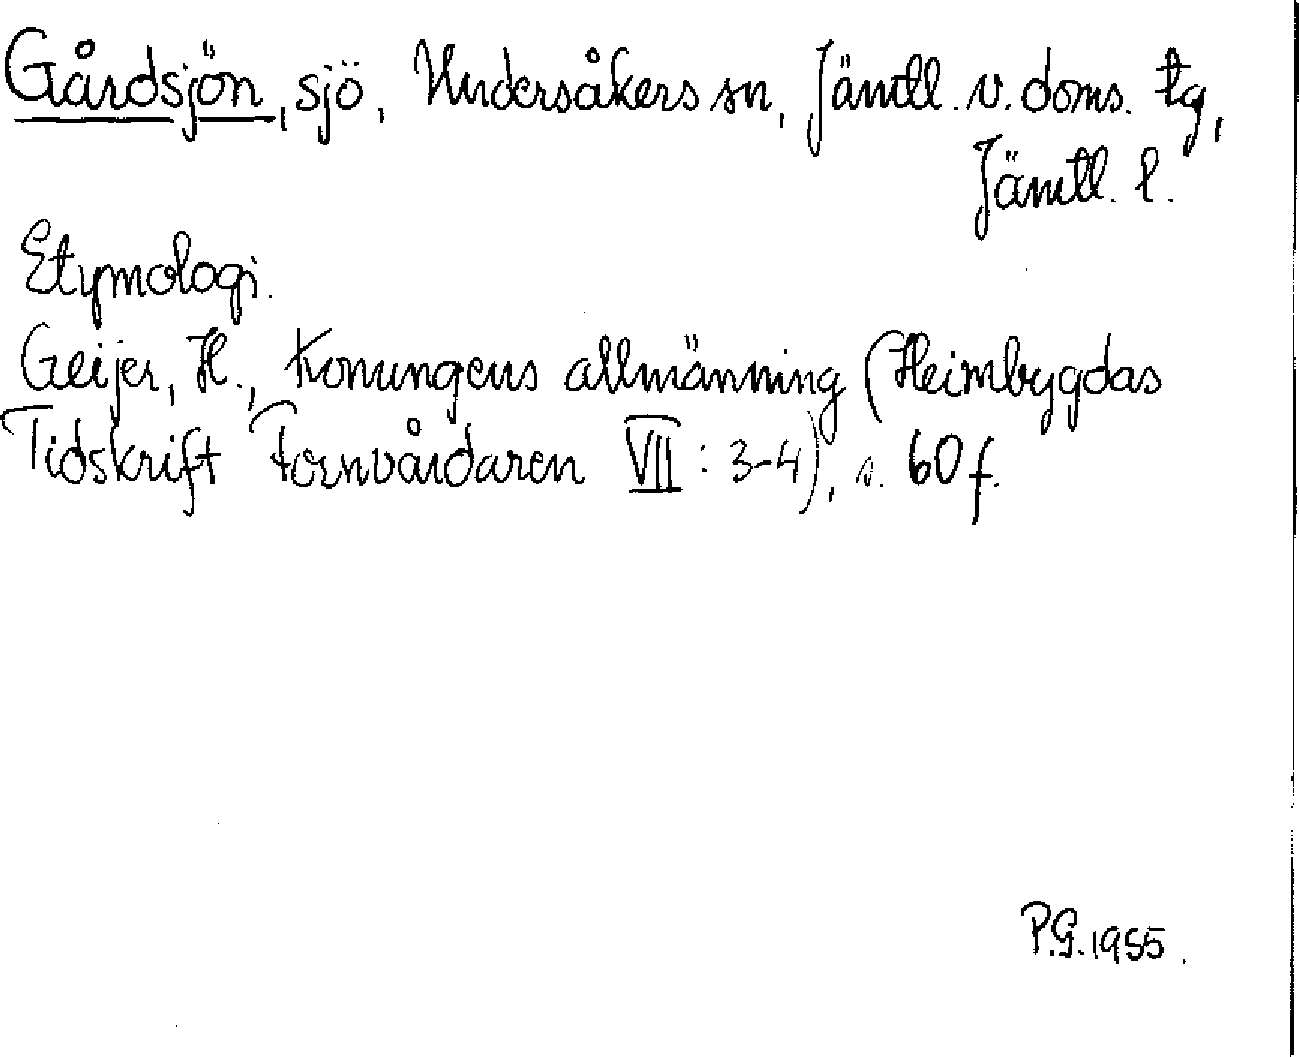 Gårdsjön, sjö, Undersåkers sn, Jämtl. v. doms. tg,
Jämtl. l.
Etymologi.
Geijer, H., Konungens allmänning (Heimbygdas
Tidskrift Fornvårdaren VII: 3-4), s. 60 f.
P.G. 1955.